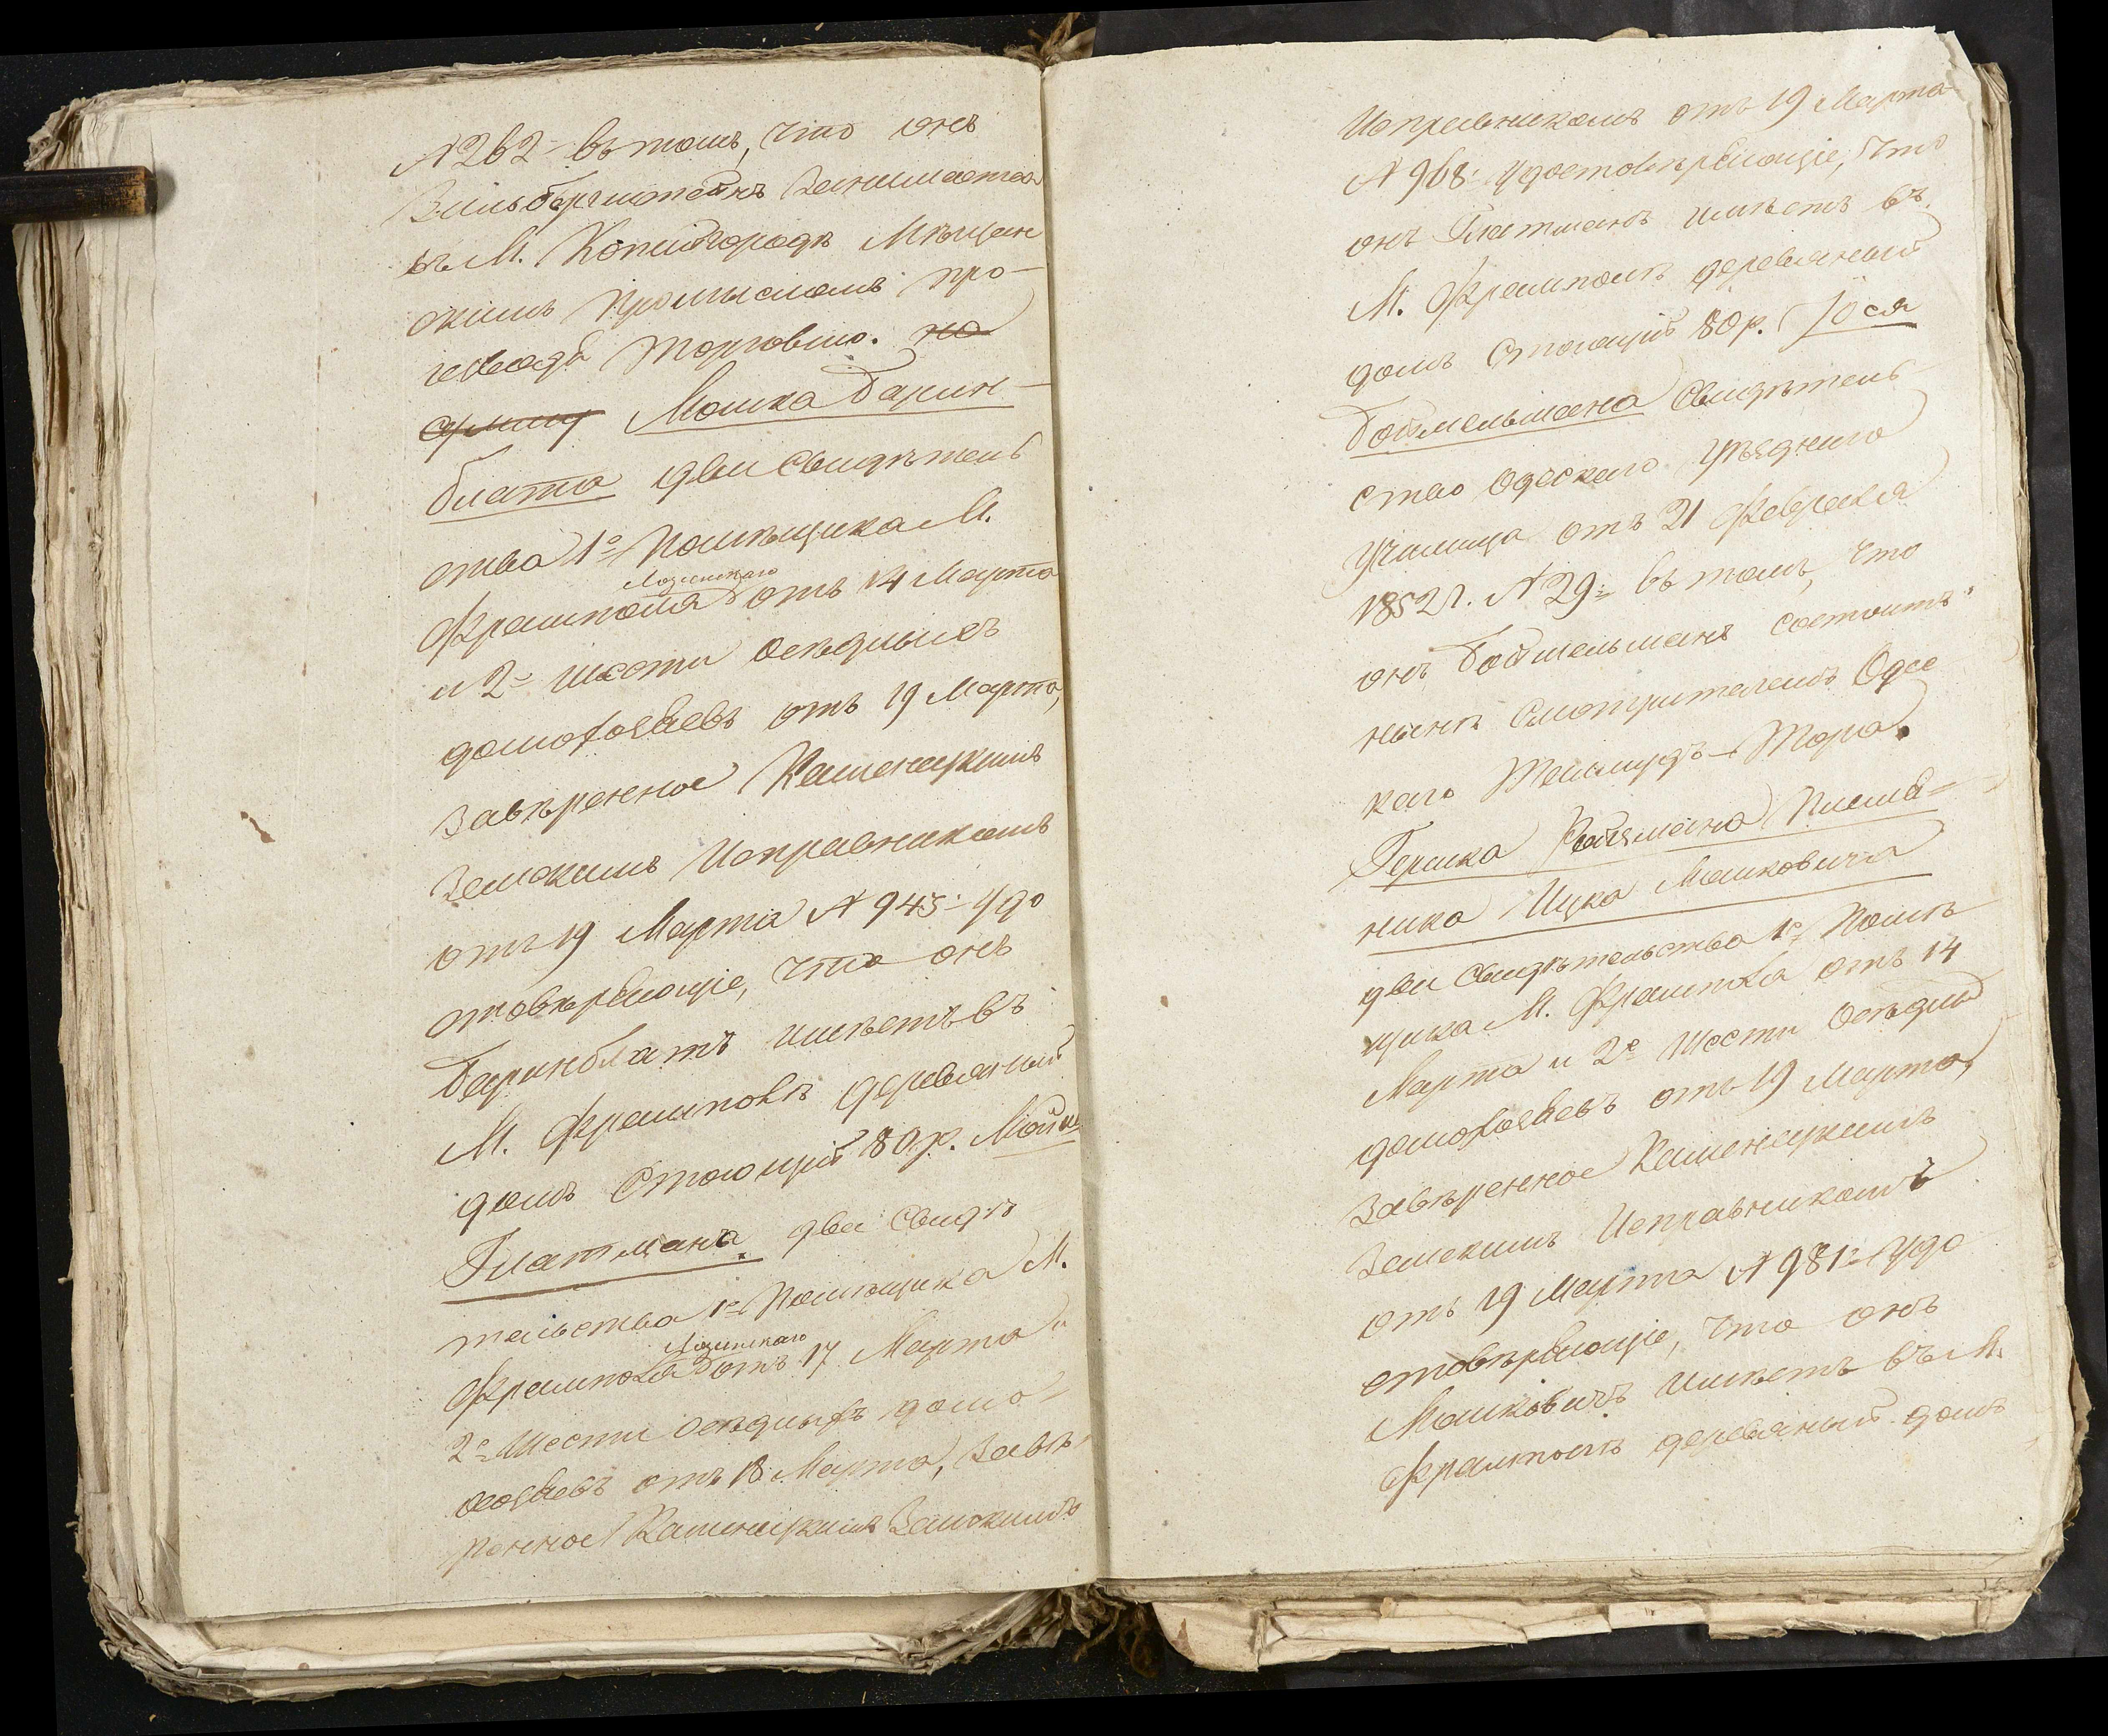 № 262 = въ томъ, что онъ
Зильберштейнъ Занимается
въ М. Копайгородѣ Мѣщан
скимъ Промысломъ про-
изводя Торговлю. на
Мошка Барин-
блата два Свидѣтель
ства 1е Помѣщика М.
Лозинскаго
Фрамполя отъ 14 Марта
и 2е Шести осѣдлыхъ
домохозяевъ отъ 19 Марта,
Завѣренное Каменецкимъ
Земскимъ Исправникомъ
отъ 19 Марта № 943 = Удо
стовѣряющіе, что онъ
Баринблатъ имѣетъ въ
М. Фрамполѣ деревяный
домъ Стоющій 80 р. Мойш
Глатмана два Свидѣ
тельства 1е Помѣщика М.
Лозинскаго
Фрамполя отъ 17 Марта и
2е Шести осѣдлыхъ домо-
хозяевъ отъ 18 Марта, Завѣ-
ренное Каменецкимъ Земскимъ
Исправникомъ отъ 19 Марта
№ 968 = Удостовѣряющіе, что
онъ Глатманъ имѣетъ въ
М. Фрамполѣ деревяный
домъ Стоющій 80 р. Іося
Бойтельмана Свидѣтель-
ство Одескаго Уѣзднаго
Училища отъ 21 Февраля
1852 г. № 29 = въ томъ, что
онъ Бойтельманъ состоитъ
нынѣ Смотрителемъ Одес
каго Талмудъ-Тора.
Гершка Ройзмана Племя=
ника Ицка Машковича
два Свидѣтельства 1е Помѣ
щика М. Фрамполя отъ 14
Марта и 2е Шести Осѣдлы
домохозяевъ отъ 19 Марта,
Завѣренное Каменецкимъ
Земскимъ Исправникомъ
отъ 19 Марта № 981 = Удо
стовѣряющіе, что онъ
Машковичъ имѣетъ въ М.
Фрамполѣ деревяный домъ